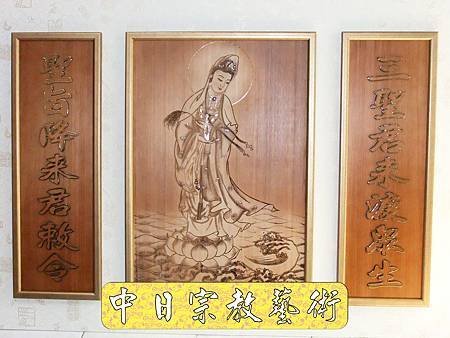 三聖君来渡眾生
聖旨降来君敕令
中日宗教藝術